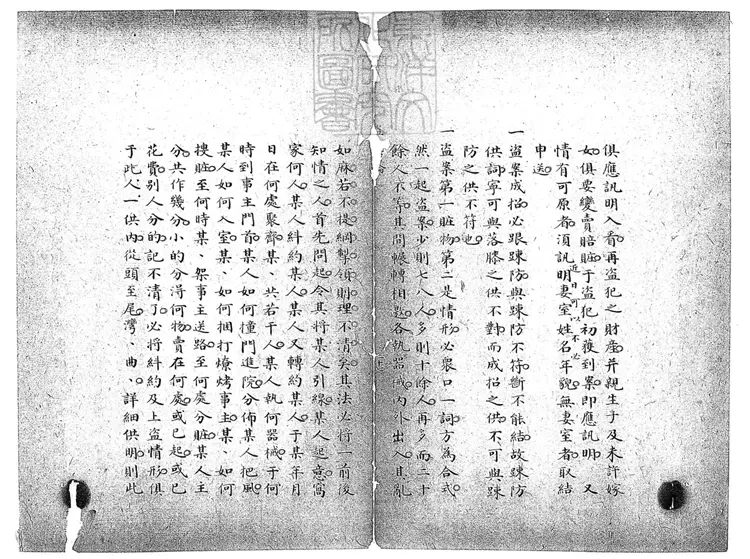 俱應訊明入看再盜犯之財產并親生子及未許嫁
女俱要變賣賠賍于盜犯初獲到案即應訊明又
情有可原者須訊明妻室姓名年貌無妻室者取結
近日可以不必
申送
一盜案成招必跟踈防與踈防不符斷不能結故踈防
供詞寧可與落膝之供不對而成招之供不可與踈
防之供不符也
一盜案第一賍物第二是情形必衆口一詞方為合式
然一起盜案少則七八人多則十餘人再多而二十
餘人不等其間輾轉相勾各執器械內外出入其亂
如麻若不提綱挈領則理不清矣其法必將一前後
知情之人首先問起令其將某人引線某人起意窩
家何人某人糾約某人某人又轉約某人于某年月
日在何處聚齊某、共若干人某人執何器械于何
時到事主門首某人如何撞門進院分佈某人把風
某人如何入室某、如何捆打燎烤事主某、如何
搜賍至何時某、架事主送路至何處分賍某人主
分共作幾分小的分得何物賣在何處或已起或已
花費別人分的記不清了必將糾約及上盜情形俱
于此人一供內從頭至尾灣、曲、詳細供明則此
東洋文
所圖書